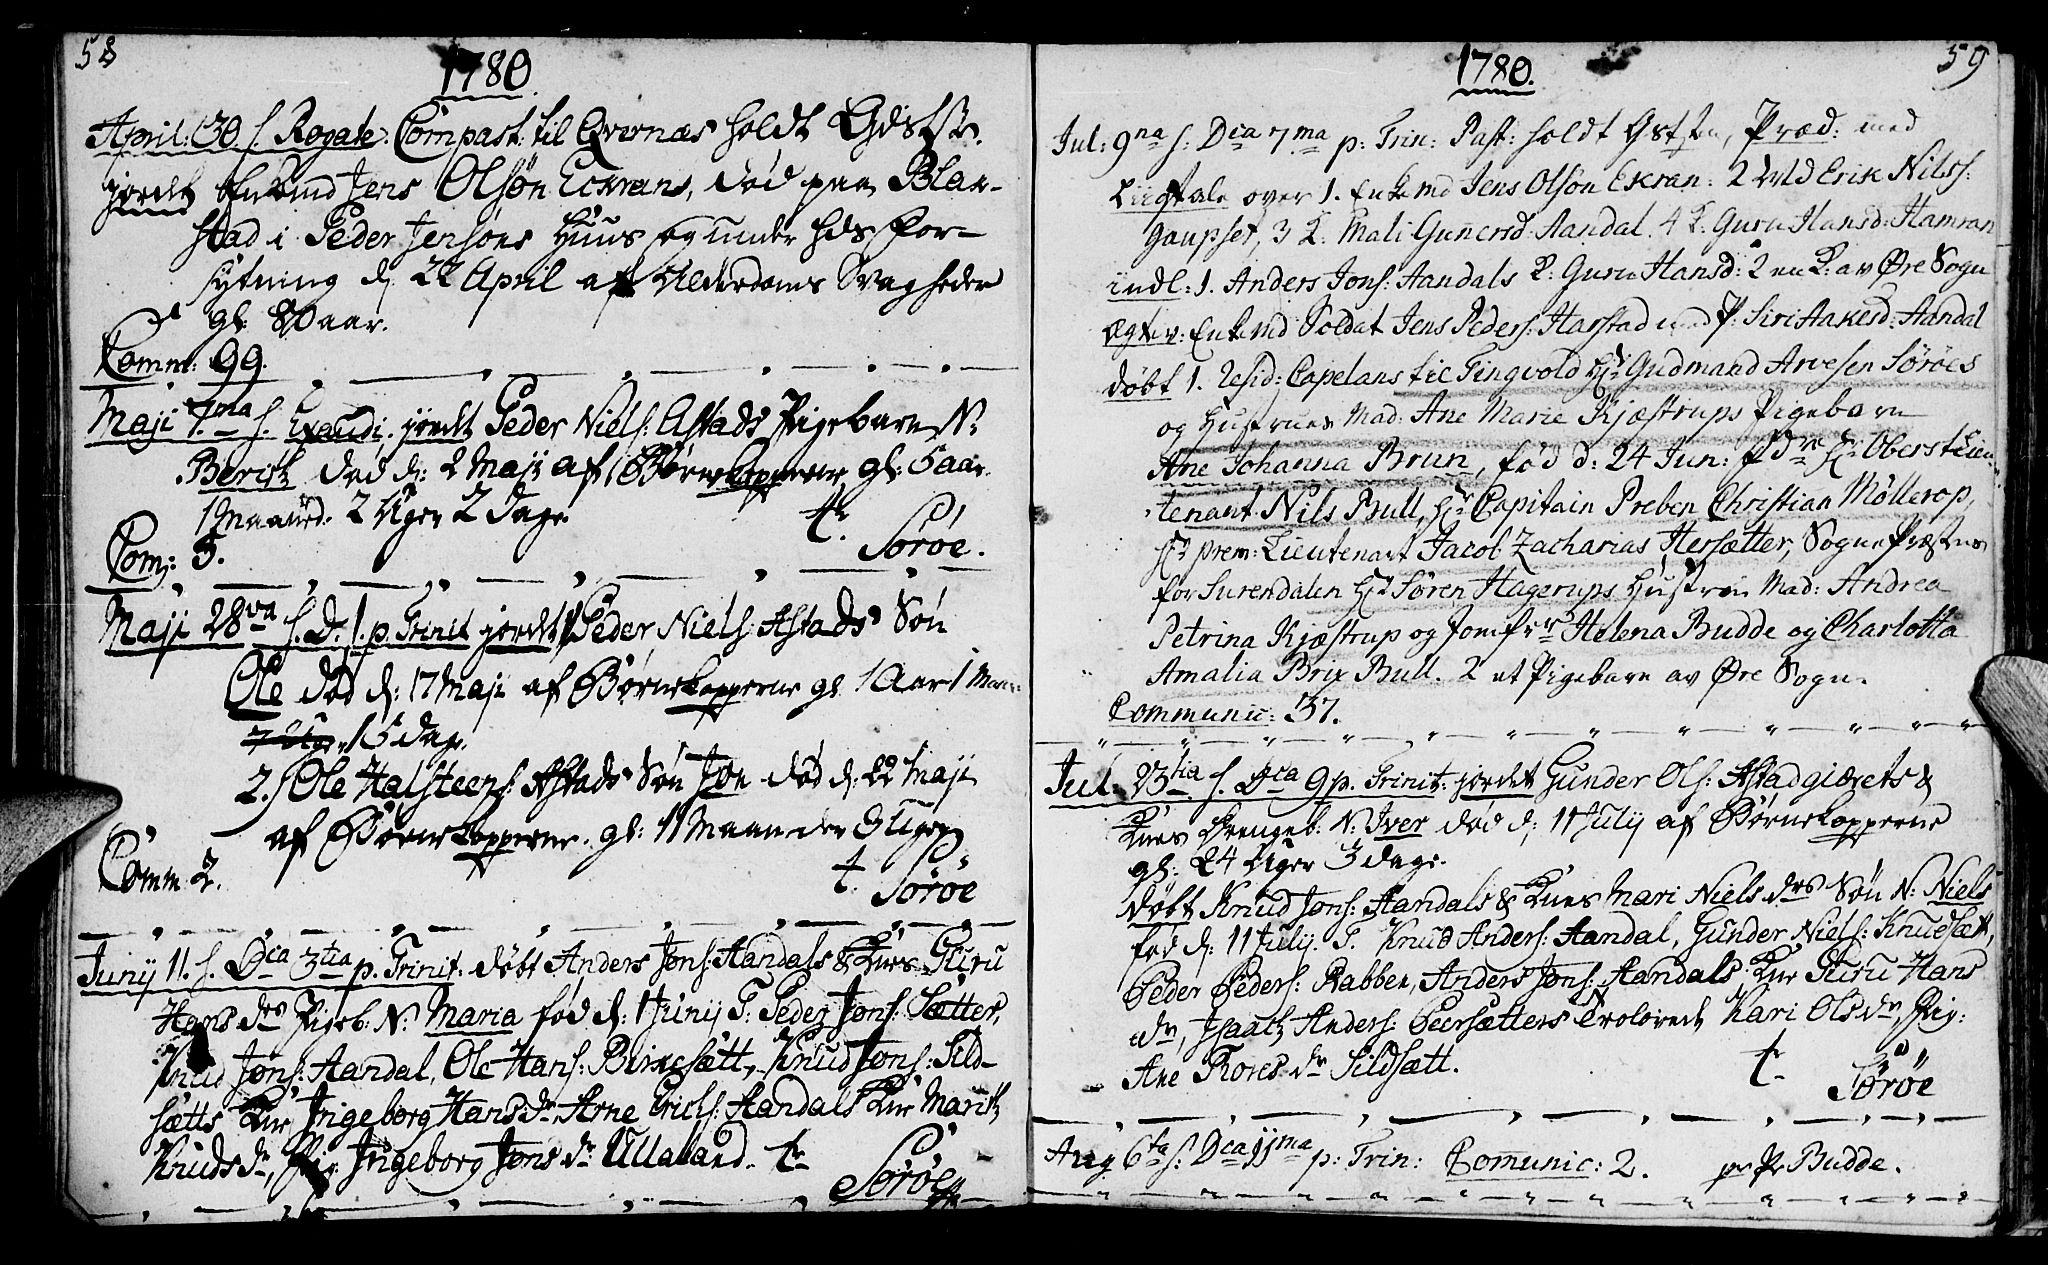 58
1780
April: 30 s. Rogate: Compast: til Qvernæs holdt Gdstste.
jordet Enkemd Jens Olsøn Eckrans, død paa Blak-
stad i Peder Jensøns Huus og under hds For-
sytning d. 22 April af Alderdoms Svagheder
gl. 80 aar.
Comm: 99.
Maji 7.ma s. Exaudi. jordet Peder Niels: Astads Pigebarn N:
Berith død d: 2 Maji af Børnekopperne, gl: 5 aar.
1 maaned. 2 Uger 2 dage.
Com: 5. t. Sørøe.
Maji 28va s. D. 1. p. Trinit jordet 1 Peder Niels: Astads Søn
Ole død d: 17 Maji af Børnekopperne gl 1 Aar 1 Maan:
15 dag.
2. Ole Halsteens: Astads Søn Jon død d: 22 Maji
af Børnekopperne. gl: 11 Maaneder 3 Uger
Comm 2. t. Sørøe
Junij 11. s. Dca 3tia p. Trinit: døbt Anders Jons: Aandals & Kues Guru
Hans drs Pigeb. N: Maria fød d: 1 Junij T: Peder Jons: Sætter,
Knud Jons: Aandal, Ole Hans: Birkesætt, Knud Jons: Sild-
sætts Kue Ingeborg Hans dr, Arne Erichs: Aandals Kue Marith
Knuds dr, Pig Ingeborg Jons dr Ullaland. t.
Sørøe
59
1780.
Jul: 9na s: Dca 7ma p: Trin: Past: holdt Gststen, Præd: med
Liigtale over 1. Enkemd Jens Olsøn Ekran: 2 Erik Nilss:
Gaupset, 3 K: Mali Gunersd: Aandal. 4 K: Guru Hansd: Hamran
indl: 1. Anders Jons: Aandals K: Guru Hansd: 2 en K: av Øre Sogn
Ægtev: Enkemd Soldat Jens Peders: Harstad med P: Siri Aakesd: Aandal
døbt 1. Resid: Capelans til Tingvold Hr: Gudmand Arvesen Sørøes
og Hustrues Mad: Ane Marie Kjæstrups Pigebarn
Ane Johanna Brun, fød d: 24 Jun: Fdre Hr: Oberst Lieu-
tenant Nils Bull, Hr: Capitain Preben Christian Möllerop,
Hr: prem: Lieutenant Jacob Zacharias Hersætter, Sogne Præstens
for Surendalen Hr: Søren Hagerups Hustrue Mad: Andrea
Petrina Kjæstrup og Jomfrr Helena Budde og Charlotta
Amalia Brix Bull. 2 et Pigebarn av Øre Sogn.
Communic: 37.
Jul: 23tia s. Dca 9 p. Trinit: jordet Gunder Ols: Astadgiærets &
Kues Drengeb: N: Iver død d: 11 July af Børnekopperne
gl: 24 Uger 3 dage.
Døbt Knud Jons: Aandals & Kues Mari Niels drs Søn N: Niels
fød d: 11 July. T. Knud Anders: Aandal, Gunder Niels: Knudsætt,
Peder Peders: Rabben, Anders Jons: Aandals Kue Guru Hans
dr, Isaach Anders: Peersætters Trolovede Kari Ols dr, Pig:
Ane Tores dr Sildsætt. t.
Sørøe
Aug 6ta s: Dca 11ma p: Trin: Comunic: 2. pr Pr Budde.